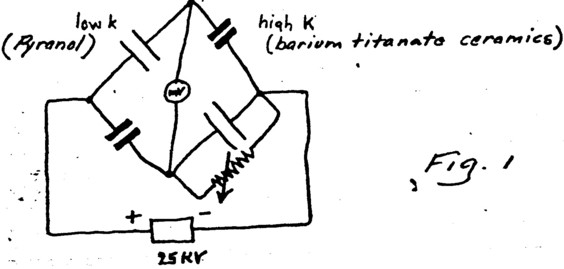 low k
(Pyranol)
high K
(barium titanate ceramics)
mV
Fig. 1
+ -
25KV